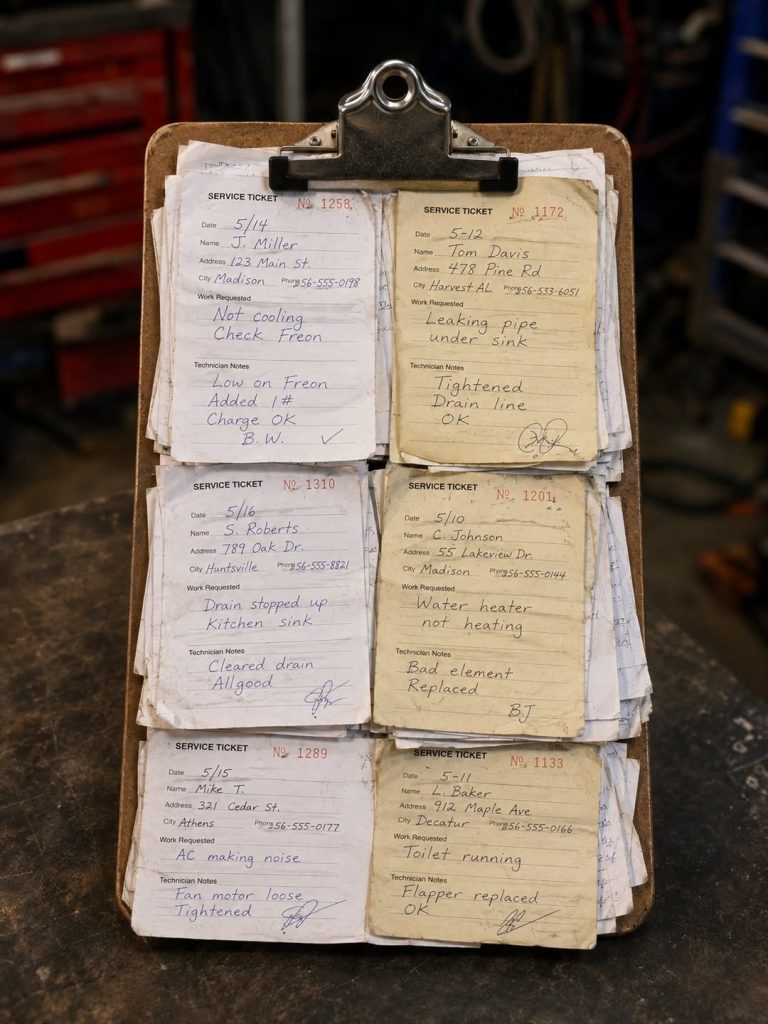 SERVICE TICKET № 1258
Date 5/14
Name J. Miller
Address 123 Main St.
City Madison Phone 256-555-0198
Work Requested
Not cooling
Check Freon
Technician Notes
Low on Freon
Added 1#
Charge OK
B.W. ✓
SERVICE TICKET № 1172
Date 5-12
Name Tom Davis
Address 478 Pine Rd
City Harvest AL Phone 256-533-6051
Work Requested
Leaking pipe
under sink
Technician Notes
Tightened
Drain line
OK
SERVICE TICKET № 1310
Date 5/16
Name S. Roberts
Address 789 Oak Dr.
City Huntsville Phone 256-555-8821
Work Requested
Drain stopped up
Kitchen sink
Technician Notes
Cleared drain
All good
SERVICE TICKET № 1201
Date 5/10
Name C. Johnson
Address 55 Lakeview Dr.
City Madison Phone 256-555-0144
Work Requested
Water heater
not heating
Technician Notes
Bad element
Replaced
BJ
SERVICE TICKET № 1289
Date 5/15
Name Mike T.
Address 321 Cedar St.
City Athens Phone 256-555-0177
Work Requested
AC making noise
Technician Notes
Fan motor loose
Tightened
SERVICE TICKET № 1133
Date 5-11
Name L. Baker
Address 912 Maple Ave
City Decatur Phone 256-555-0166
Work Requested
Toilet running
Technician Notes
Flapper replaced
OK